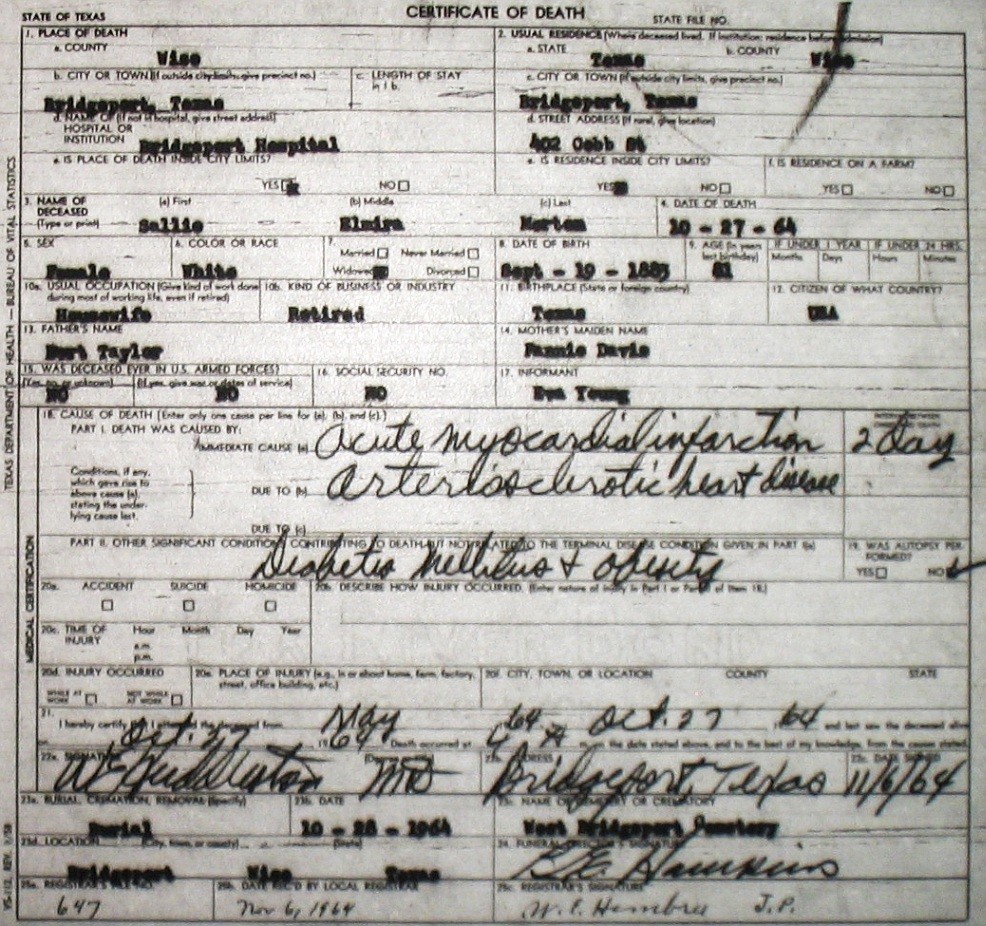 STATE OF TEXAS CERTIFICATE OF DEATH STATE FILE NO.
1. PLACE OF DEATH 2. USUAL RESIDENCE (Where deceased lived. If institution: residence before admission)
a. COUNTY a. STATE b. COUNTY
Wise Texas Wise
b. CITY OR TOWN (If outside city limits, give precinct no.) c. LENGTH OF STAY in 1 b. c. CITY OR TOWN (If outside city limits, give precinct no.)
Bridgeport, Texas Bridgeport, Texas
d. NAME OF (If not in hospital, give street address) HOSPITAL OR INSTITUTION d. STREET ADDRESS (If rural, give location)
Bridgeport Hospital 402 Cobb St
e. IS PLACE OF DEATH INSIDE CITY LIMITS? e. IS RESIDENCE INSIDE CITY LIMITS? f. IS RESIDENCE ON A FARM?
YES NO YES NO YES NO
3. NAME OF DECEASED (Type or print) (a) First (b) Middle (c) Last 4. DATE OF DEATH
Sallie Elmira Morton 10 - 27 - 64
5. SEX 6. COLOR OR RACE 7. Married Never Married Widowed Divorced 8. DATE OF BIRTH 9. AGE (In years last birthday) IF UNDER 1 YEAR Months Days IF UNDER 24 HRS. Hours Minutes
Female White Sept - 19 - 1883 81
10a. USUAL OCCUPATION (Give kind of work done during most of working life, even if retired) 10b. KIND OF BUSINESS OR INDUSTRY 11. BIRTHPLACE (State or foreign country) 12. CITIZEN OF WHAT COUNTRY?
Housewife Retired Texas USA
13. FATHER'S NAME 14. MOTHER'S MAIDEN NAME
Burt Taylor Fannie Davis
15. WAS DECEASED EVER IN U.S. ARMED FORCES? 16. SOCIAL SECURITY NO. 17. INFORMANT
(Yes, no, or unknown) (If yes, give war or dates of service)
NO NO NO Eva Young
18. CAUSE OF DEATH [Enter only one cause per line for (a), (b), and (c).]
PART I. DEATH WAS CAUSED BY:
IMMEDIATE CAUSE (a) Acute myocardial infarction 2 Day
Conditions, if any, which gave rise to above cause (a), stating the underlying cause last.
DUE TO (b) Arteriosclerotic heart disease
DUE TO (c)
PART II. OTHER SIGNIFICANT CONDITIONS CONTRIBUTING TO DEATH BUT NOT RELATED TO THE TERMINAL DISEASE CONDITION GIVEN IN PART I(a) 19. WAS AUTOPSY PERFORMED?
Diabetis Mellitus & obesity YES NO
20a. ACCIDENT SUICIDE HOMICIDE 20b. DESCRIBE HOW INJURY OCCURRED. (Enter nature of injury in Part I or Part II of Item 18.)
20c. TIME OF INJURY Hour Month Day Year
a.m.
p.m.
20d. INJURY OCCURRED 20e. PLACE OF INJURY (e.g., in or about home, farm, factory, street, office building, etc.) 20f. CITY, TOWN, OR LOCATION COUNTY STATE
WHILE AT WORK NOT WHILE AT WORK
21. I hereby certify that I attended the deceased from May 64 Oct. 27 1964 and last saw the deceased alive
on Oct. 27 1964 Death occurred at m. on the date stated above, and to the best of my knowledge, from the causes stated.
22a. SIGNATURE MD 22b. ADDRESS Bridgeport, Texas 22c. DATE SIGNED 11/6/64
23a. BURIAL, CREMATION, REMOVAL (Specify) 23b. DATE 23c. NAME OF CEMETERY OR CREMATORY
Burial 10 - 28 - 1964 West Bridgeport Cemetery
23d. LOCATION (City, town, or county) (State) 24. FUNERAL DIRECTOR'S SIGNATURE
Bridgeport Wise Texas Hawkins
25a. REGISTRAR'S FILE NO. 25b. DATE REC'D BY LOCAL REGISTRAR 25c. REGISTRAR'S SIGNATURE
647 Nov 6, 1964 W. F. Hembree J.P.
TEXAS DEPARTMENT OF HEALTH — BUREAU OF VITAL STATISTICS
MEDICAL CERTIFICATION
VS-112, REV. 1/58